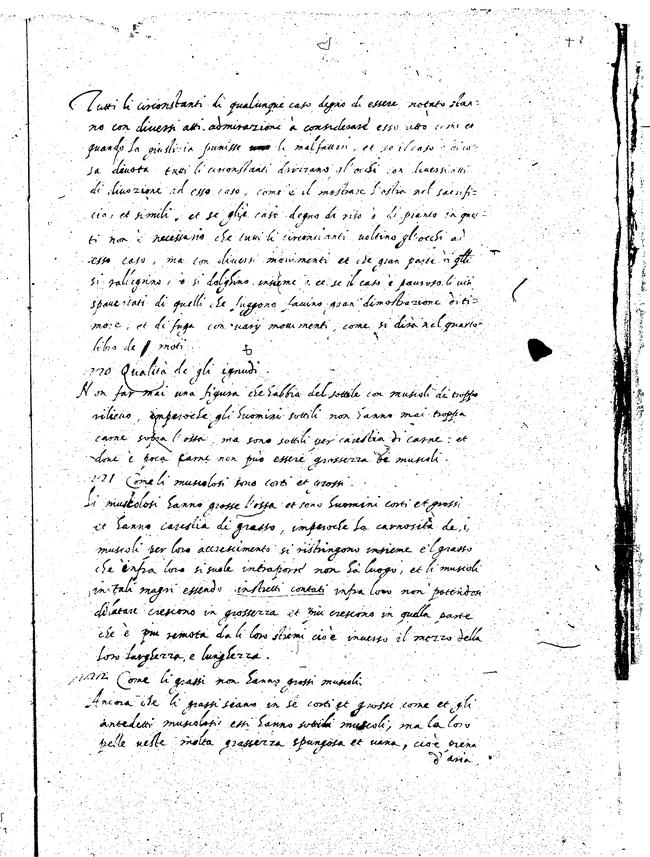 Tutti li circonstanti di qualunque caso degno di essere notato stan-
no con diversi atti admirazione à considerare esso atto come et
quando la giustizia punisse li malfattori, et se il caso è di co-
sa divota tutti li circonstanti drizzano gl'occhi con diversi atti
di divozione ad esso caso, come è il mostrare l'ostia nel sacrifi-
cio, et simili, et se gl'è caso degno di riso o di pianto in ques-
ti non è necessario che tutti li circonstanti voltino gl'occhi ad
esso caso, ma con diversi movimenti et che gran parte di qlli
si rallegrino, o si dolghino insieme, et se il caso è pauroso li visi
spaventati di quelli che fuggono faccino gran dimostrazione di ti-
more, et di fuga con varij movimenti, come si dirà nel quarto
libro de moti.
220 Qualità de gli ignudi.
Non far mai una figura che habbia del sottile con muscoli di troppo
rilievo, imperoche gli huomini sottili non hanno mai troppa
carne sopra l'ossa, ma sono sottili per carestia di carne: et
dove è poca carne non può essere grossezza de muscoli.
221 Come li muscolosi sono corti et grossi.
Li muscolosi hanno grosse l'ossa et sono huomini corti et grossi
et hanno carestia di grasso, imperoche la carnosità de i
muscoli per loro accrescimento si ristringono insieme e'l grasso
che infra loro si suole intraporre non hà luogo, et li muscoli
in tali magri essendo instretti contati infra loro non potendosi
dilatare crescono in grossezza et più crescono in quella parte
che è più remota dali loro stremi cioè inverso il mezzo della
loro larghezza, e lunghezza.
222 Come li grassi non hanno grossi muscoli.
Ancora che li grassi siano in sè corti et grossi come et gli
antedetti muscolosi essi hanno sottili muscoli, ma la loro
pelle veste molta grossezza spungosa et vana, cioè piena
d'aria.